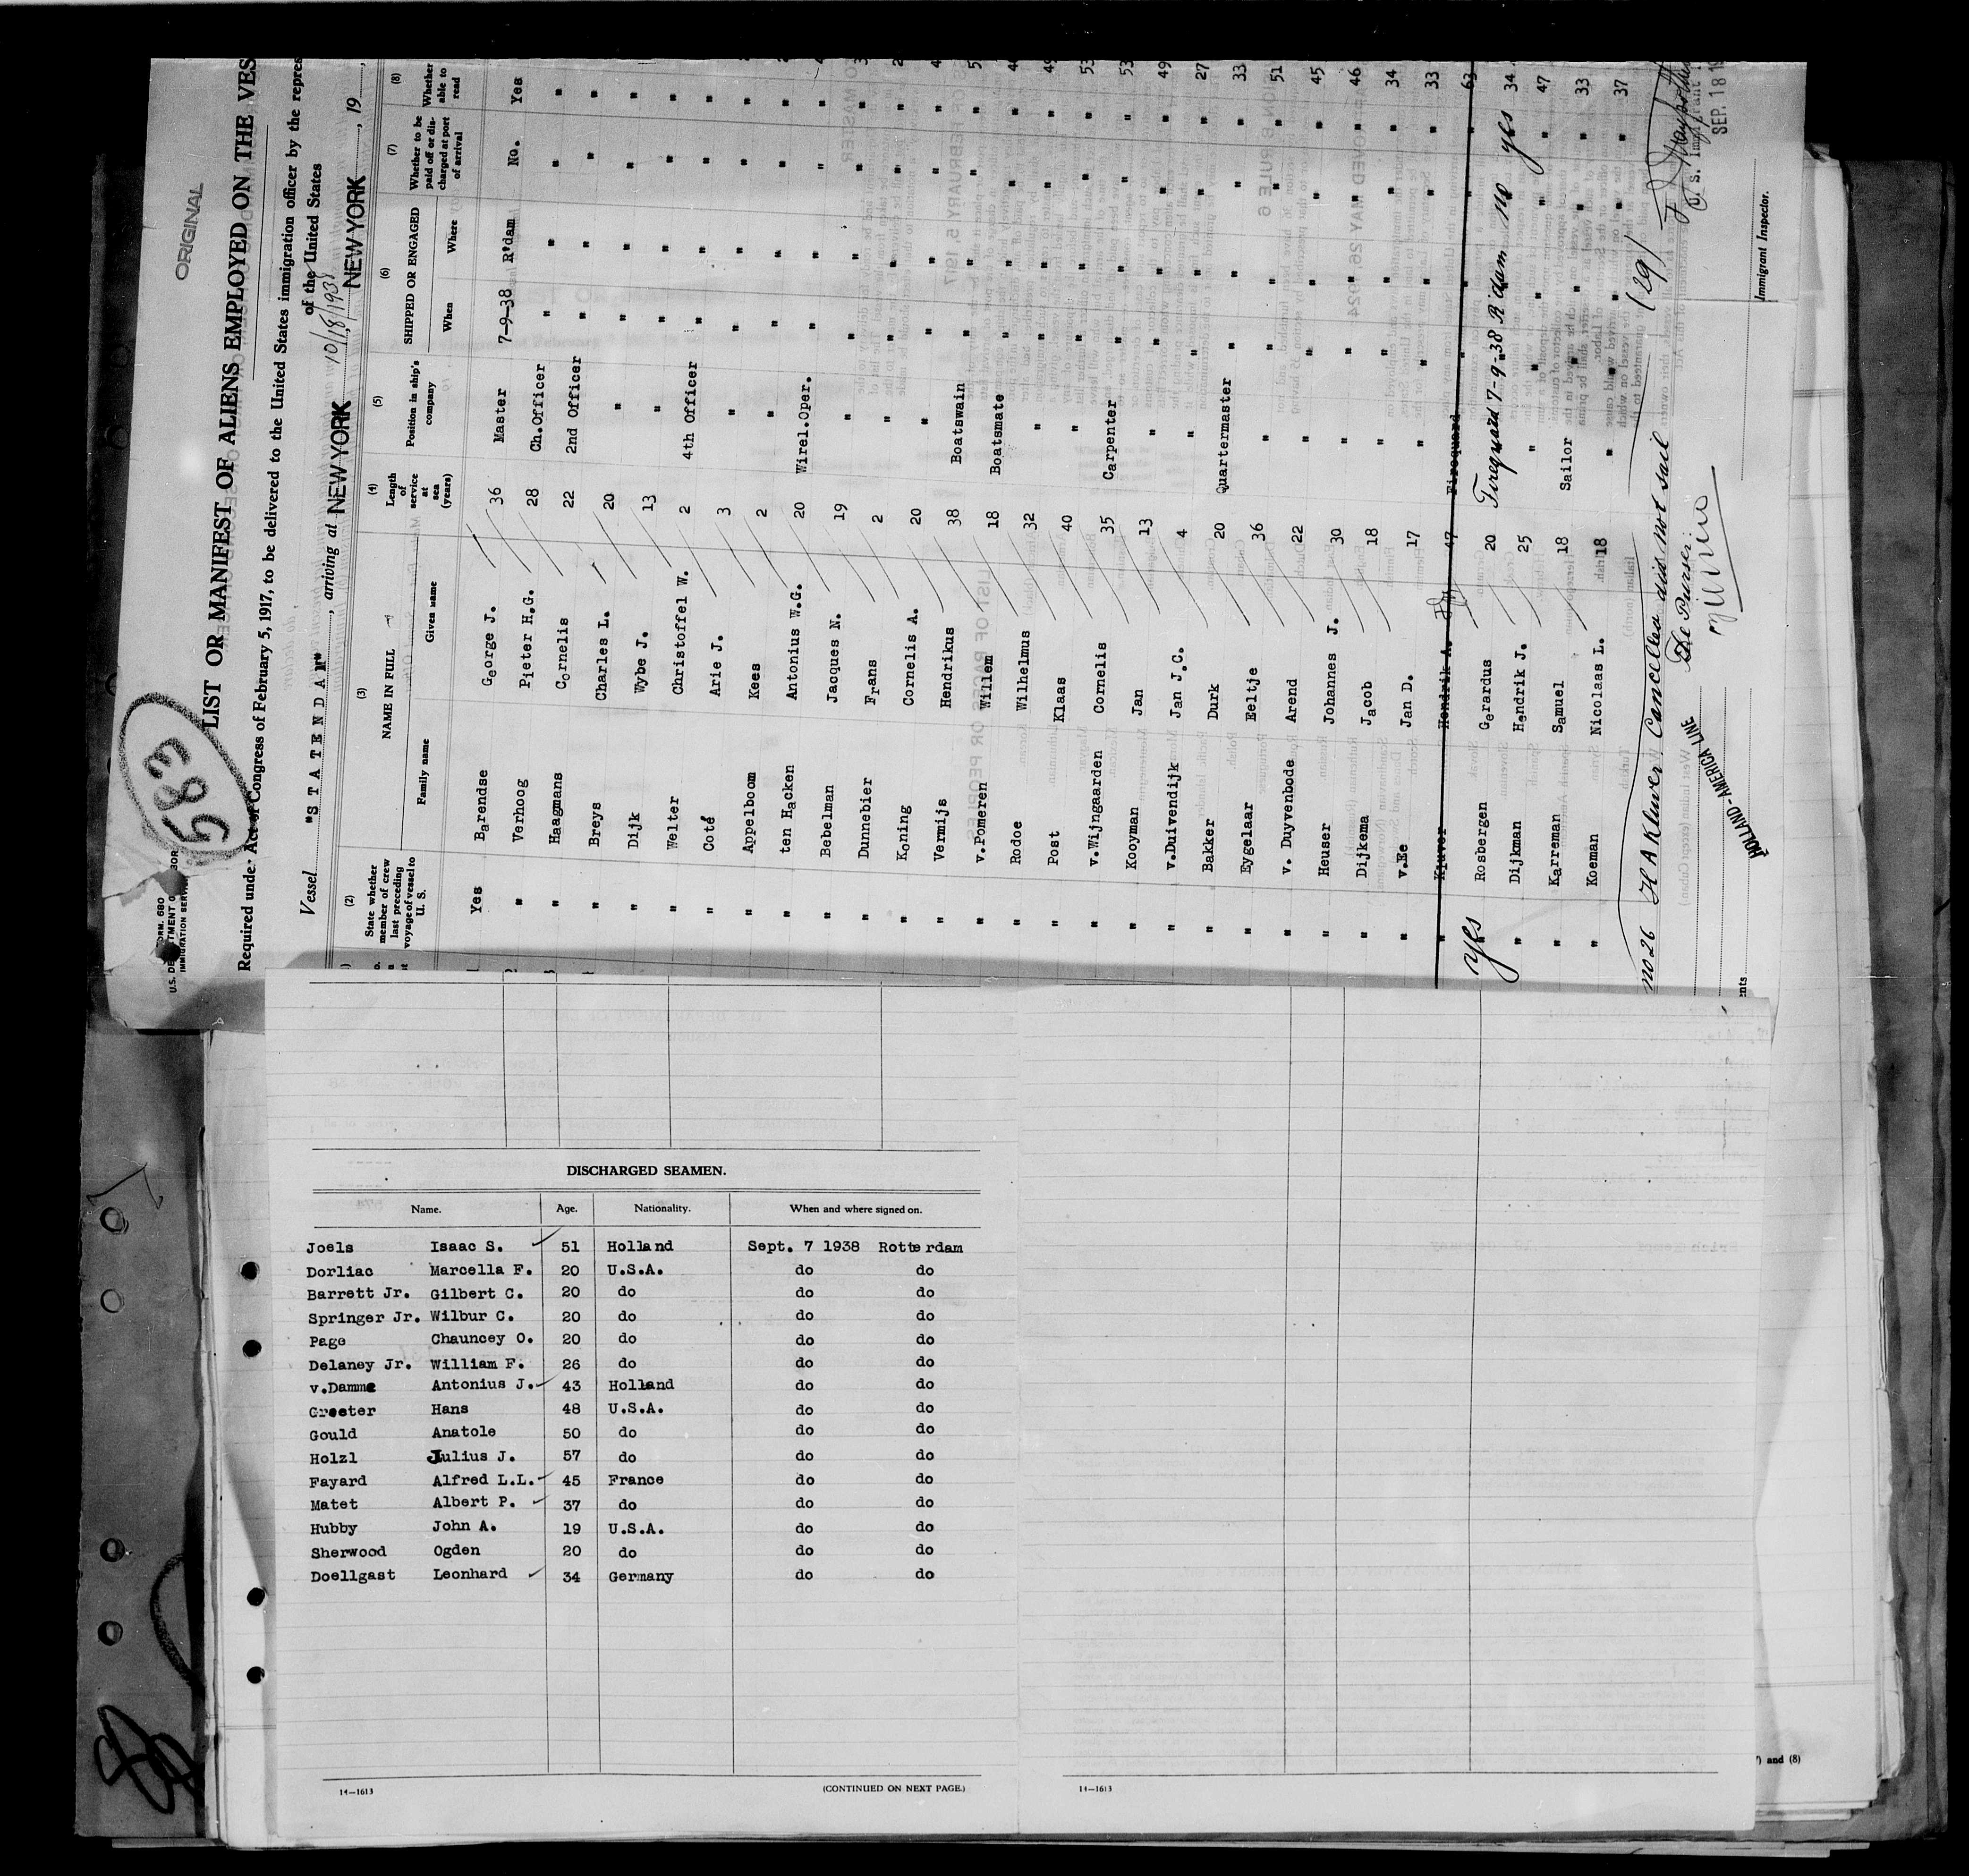 ORIGINAL
583
FORM 680
U.S. DEPARTMENT O
IMMIGRATION SERV
LIST OR MANIFEST OF ALIENS EMPLOYED ON THE VES
Required under Act of Congress of February 5, 1917, to be delivered to the United States immigration officer by the repres
of the United States
Vessel "STATENDAM", arriving at NEW YORK 10/18/1938, NEW YORK, 19
(2) (3) (4) (5) (6) (7) (8)
State whether member of crew last preceding voyage of vessel to U. S. NAME IN FULL Length of service at sea (years) Position in ship's company SHIPPED OR ENGAGED Whether to be paid off or discharged at port of arrival Whether able to read
Family name Given name When Where
Yes Barendse George J. 36 Master 7-9-38 R'dam No. Yes
" Verhoog Pieter H.G. 28 Ch.Officer " " " "
" Haagmans Cornelis 22 2nd Officer " " " "
" Breys Charles L. 20 " " " " "
" Dijk Wybe J. 13 " " " " "
" Welter Christoffel W. 2 4th Officer " " " "
" Coté Arie J. 3 " " " " "
" Appelboom Kees 2 " " " " "
" ten Hacken Antonius W.G. 20 Wirel.Oper. " " " "
" Bebelman Jacques N. 19 " " " " "
" Dunnebier Frans 2 " " " " "
" Koning Cornelis A. 20 " " " " "
" Vermijs Hendrikus 38 Boatswain " " " "
" v.Pomeren Willem 18 Boatsmate " " " "
" Rodoe Wilhelmus 32 " " " " "
" Post Klaas 40 " " " " "
" v.Wijngaarden Cornelis 35 Carpenter " " " " 53
" Kooyman Jan 13 " " " " " 53
" v.Duivendijk Jan J.C. 4 " " " " " 49
" Bakker Durk 20 Quartermaster " " " " 27
" Eygelaar Eeltje 36 " " " " " 33
" v. Duyvenbode Arend 22 " " " " " 51
" Heuser Johannes J. 30 " " " " " 45
" Dijkema Jacob 18 " " " " " 46
" v.Ee Jan D. 17 " " " " " 34
" Kluver Hendrik A. 47 Fireguard " " " " 63
Yes Rosbergen Gerardus 20 Fireguard 7-9-38 R'dam no yes 34
" Dijkman Hendrik J. 25 " " " " " 47
" Karreman Samuel 18 Sailor " " " " 33
" Koeman Nicolaas L. 18 " " " " " 37
no 26 H A Kluver Cancelled did not sail (29)
The Purser:
HOLLAND-AMERICA LINE
U. S. Immigrant
SEP. 18 19
Immigrant Inspector.
DISCHARGED SEAMEN.
Name. Age. Nationality. When and where signed on.
Joels Isaac S. 51 Holland Sept. 7 1938 Rotterdam
Dorliac Marcella F. 20 U.S.A. do do
Barrett Jr. Gilbert C. 20 do do do
Springer Jr. Wilbur C. 20 do do do
Page Chauncey O. 20 do do do
Delaney Jr. William F. 26 do do do
v.Damme Antonius J. 43 Holland do do
Greeter Hans 48 U.S.A. do do
Gould Anatole 50 do do do
Holzl Julius J. 57 do do do
Fayard Alfred L.L. 45 France do do
Matet Albert P. 37 do do do
Hubby John A. 19 U.S.A. do do
Sherwood Ogden 20 do do do
Doellgast Leonhard 34 Germany do do
14—1613 (CONTINUED ON NEXT PAGE.)
14—1613
) and (8)